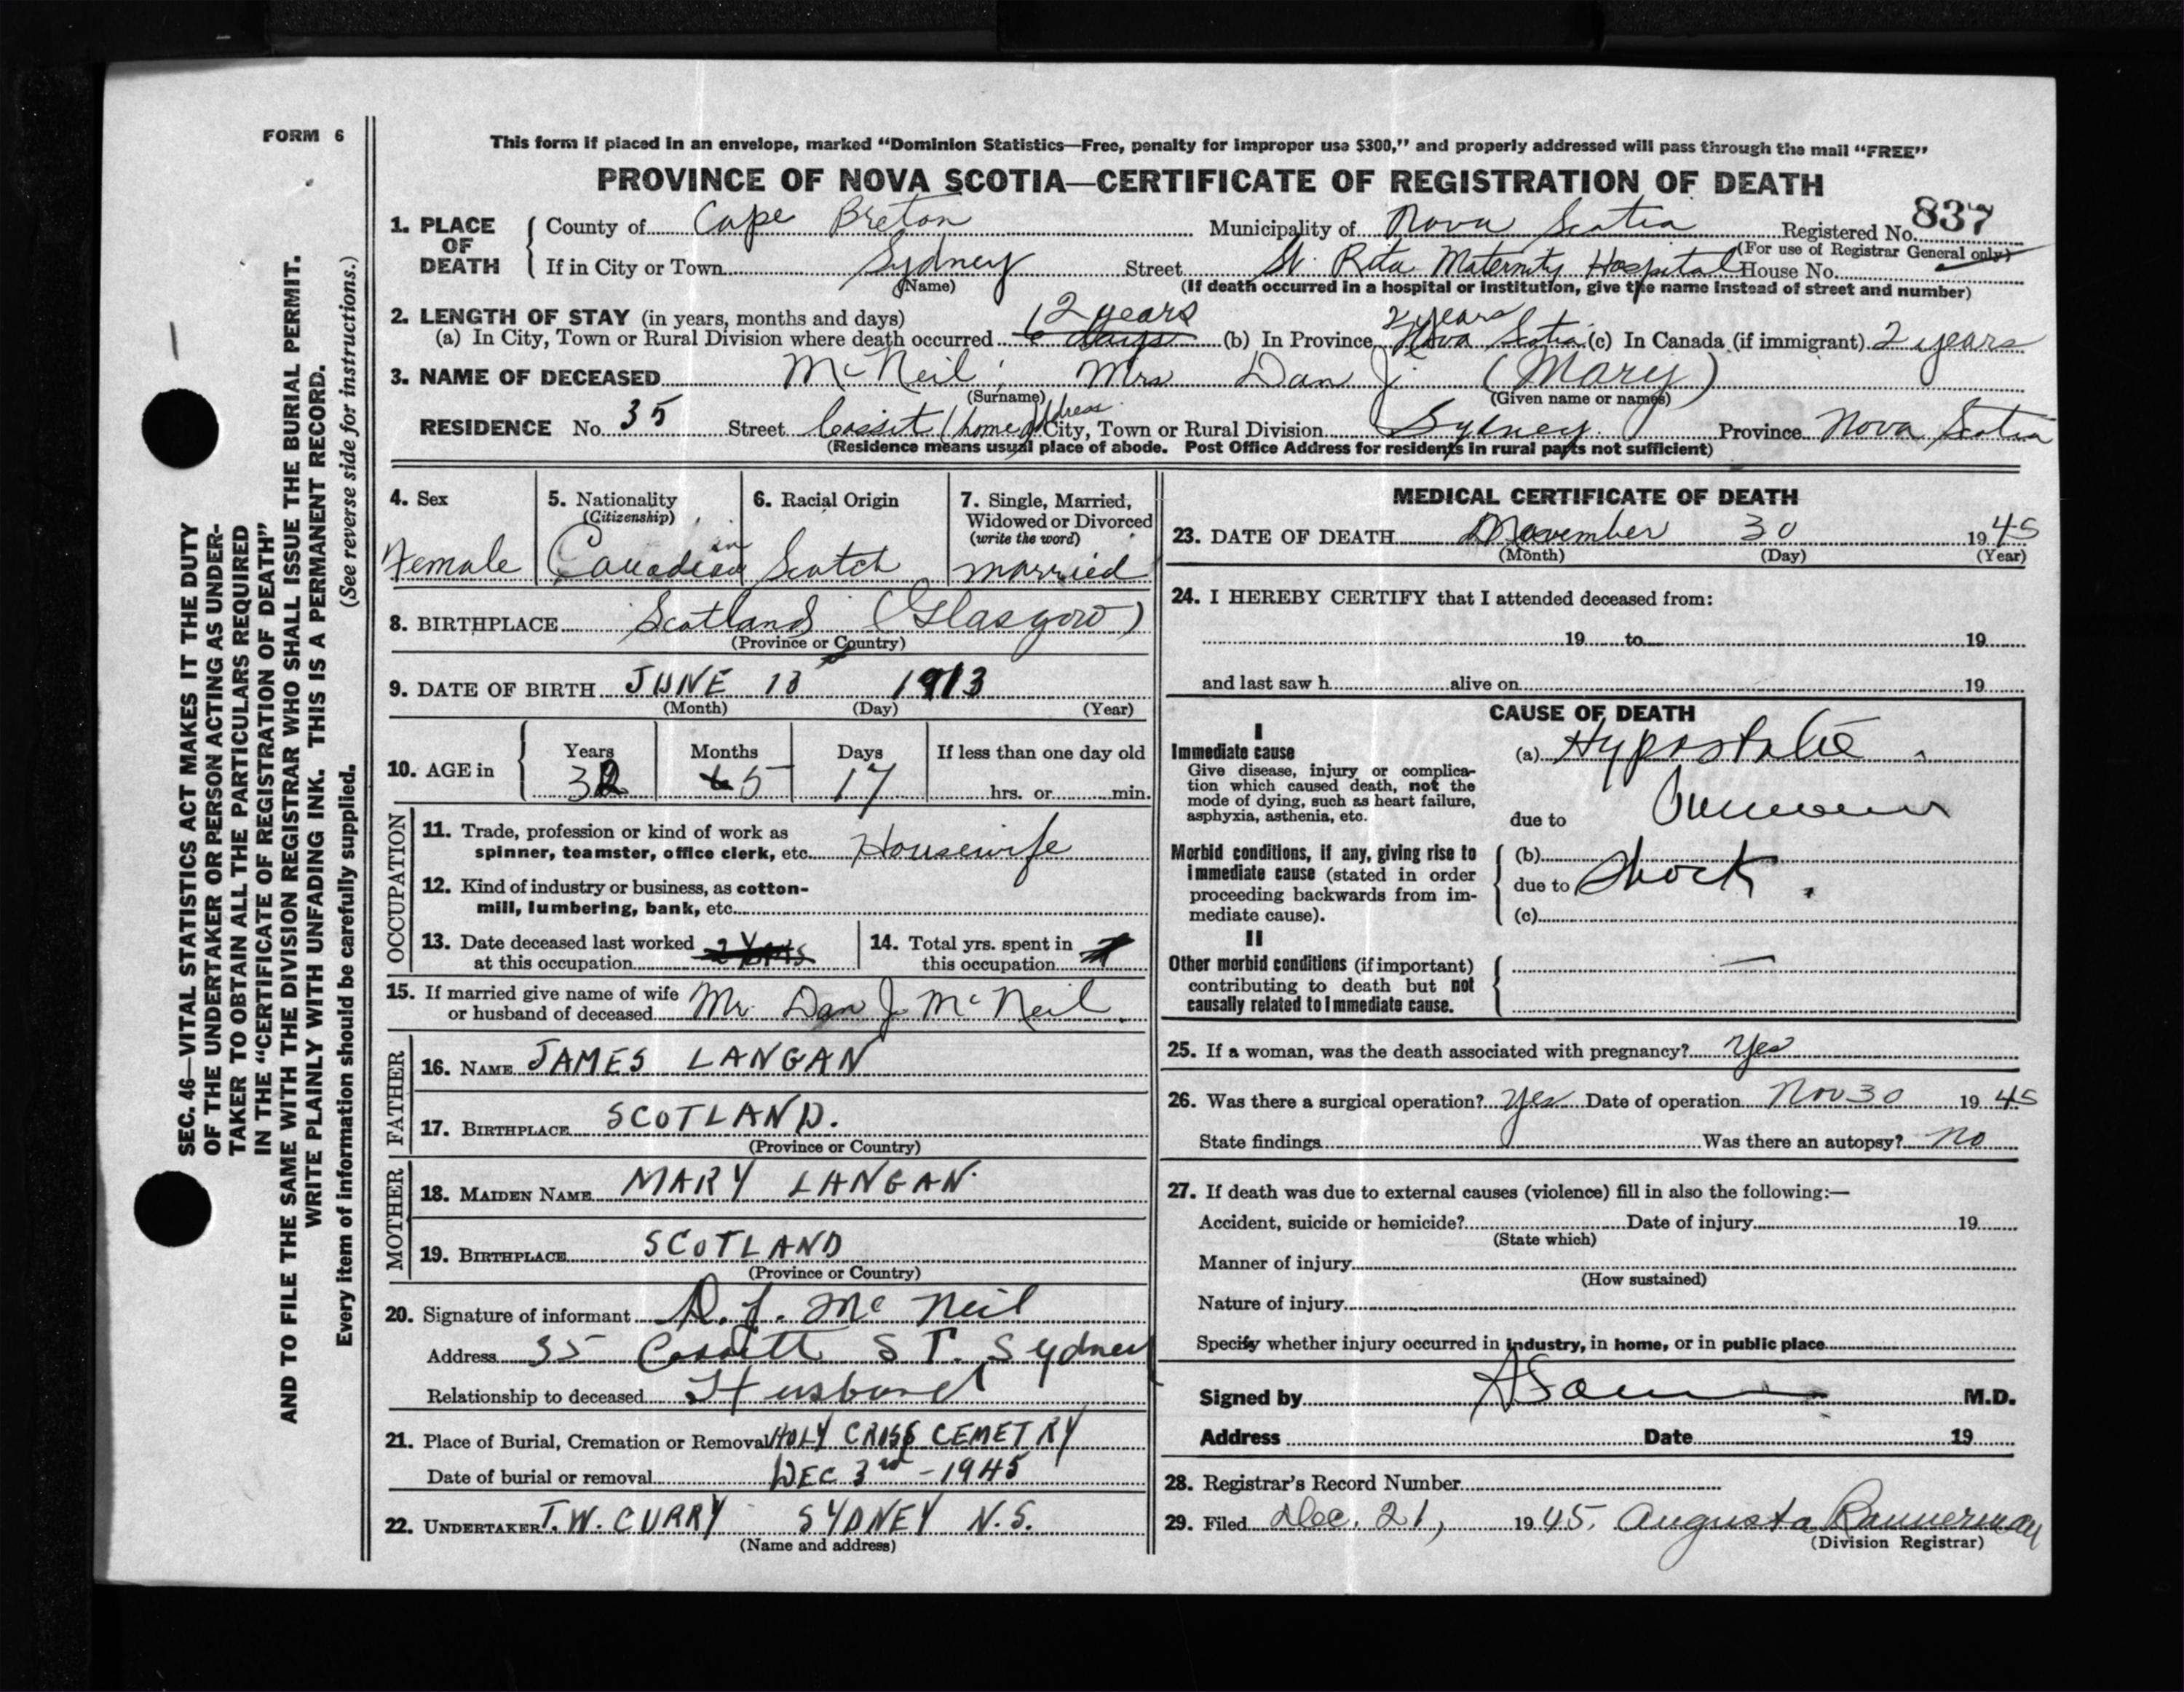 FORM 6
This form if placed in an envelope, marked “Dominion Statistics—Free, penalty for improper use $300,” and properly addressed will pass through the mail “FREE”
PROVINCE OF NOVA SCOTIA—CERTIFICATE OF REGISTRATION OF DEATH
1. PLACE OF DEATH County of Cape Breton Municipality of Nova Scotia Registered No. 837
(For use of Registrar General only)
If in City or Town Sydney Street St. Rita Maternity Hospital House No.
(Name) (If death occurred in a hospital or institution, give the name instead of street and number)
2. LENGTH OF STAY (in years, months and days)
(a) In City, Town or Rural Division where death occurred 6 days 2 years (b) In Province Nova Scotia 2 years (c) In Canada (if immigrant) 2 years
3. NAME OF DECEASED McNeil, Mrs Dan J. (Mary)
(Surname) (Given name or names)
RESIDENCE No. 35 Street Cossit (home address) City, Town or Rural Division Sydney Province Nova Scotia
(Residence means usual place of abode. Post Office Address for residents in rural parts not sufficient)
4. Sex Female
5. Nationality (Citizenship) Canadian
6. Racial Origin Scotch
7. Single, Married, Widowed or Divorced (write the word) married
8. BIRTHPLACE Scotland (Glasgow)
(Province or Country)
9. DATE OF BIRTH JUNE 13 1913
(Month) (Day) (Year)
10. AGE in Years 32 Months 5 Days 17 If less than one day old
hrs. or min.
OCCUPATION
11. Trade, profession or kind of work as
spinner, teamster, office clerk, etc. Housewife
12. Kind of industry or business, as cotton-
mill, lumbering, bank, etc.
13. Date deceased last worked
at this occupation 2 YEARS
14. Total yrs. spent in
this occupation
15. If married give name of wife
or husband of deceased Mr. Dan J. McNeil.
FATHER
16. NAME JAMES LANGAN
17. BIRTHPLACE SCOTLAND.
(Province or Country)
MOTHER
18. MAIDEN NAME MARY LANGAN.
19. BIRTHPLACE SCOTLAND
(Province or Country)
20. Signature of informant D. J. McNeil
Address 35 Cossitt ST. Sydney
Relationship to deceased Husband
21. Place of Burial, Cremation or Removal HOLY CROSS CEMETRY
Date of burial or removal DEC 3rd - 1945
22. UNDERTAKER T. W. CURRY SYDNEY N.S.
(Name and address)
MEDICAL CERTIFICATE OF DEATH
23. DATE OF DEATH November 30 1945
(Month) (Day) (Year)
24. I HEREBY CERTIFY that I attended deceased from:
19 to 19
and last saw h alive on 19
CAUSE OF DEATH
I
Immediate cause (a) Hypostatic
Give disease, injury or complica-
tion which caused death, not the
mode of dying, such as heart failure,
asphyxia, asthenia, etc. due to
Morbid conditions, if any, giving rise to (b)
immediate cause (stated in order due to Shock.
proceeding backwards from im-
mediate cause). (c)
II
Other morbid conditions (if important) —
contributing to death but not
causally related to immediate cause.
25. If a woman, was the death associated with pregnancy? Yes
26. Was there a surgical operation? Yes Date of operation Nov 30 1945
State findings Was there an autopsy? No
27. If death was due to external causes (violence) fill in also the following:—
Accident, suicide or homicide? Date of injury 19
(State which)
Manner of injury
(How sustained)
Nature of injury
Specify whether injury occurred in industry, in home, or in public place
Signed by M.D.
Address Date 19
28. Registrar's Record Number
29. Filed Dec. 21, 1945. Augusta Bannerman
(Division Registrar)
SEC. 46—VITAL STATISTICS ACT MAKES IT THE DUTY
OF THE UNDERTAKER OR PERSON ACTING AS UNDER-
TAKER TO OBTAIN ALL THE PARTICULARS REQUIRED
IN THE “CERTIFICATE OF REGISTRATION OF DEATH”
AND TO FILE THE SAME WITH THE DIVISION REGISTRAR WHO SHALL ISSUE THE BURIAL PERMIT.
WRITE PLAINLY WITH UNFADING INK. THIS IS A PERMANENT RECORD.
Every item of information should be carefully supplied. (See reverse side for instructions.)